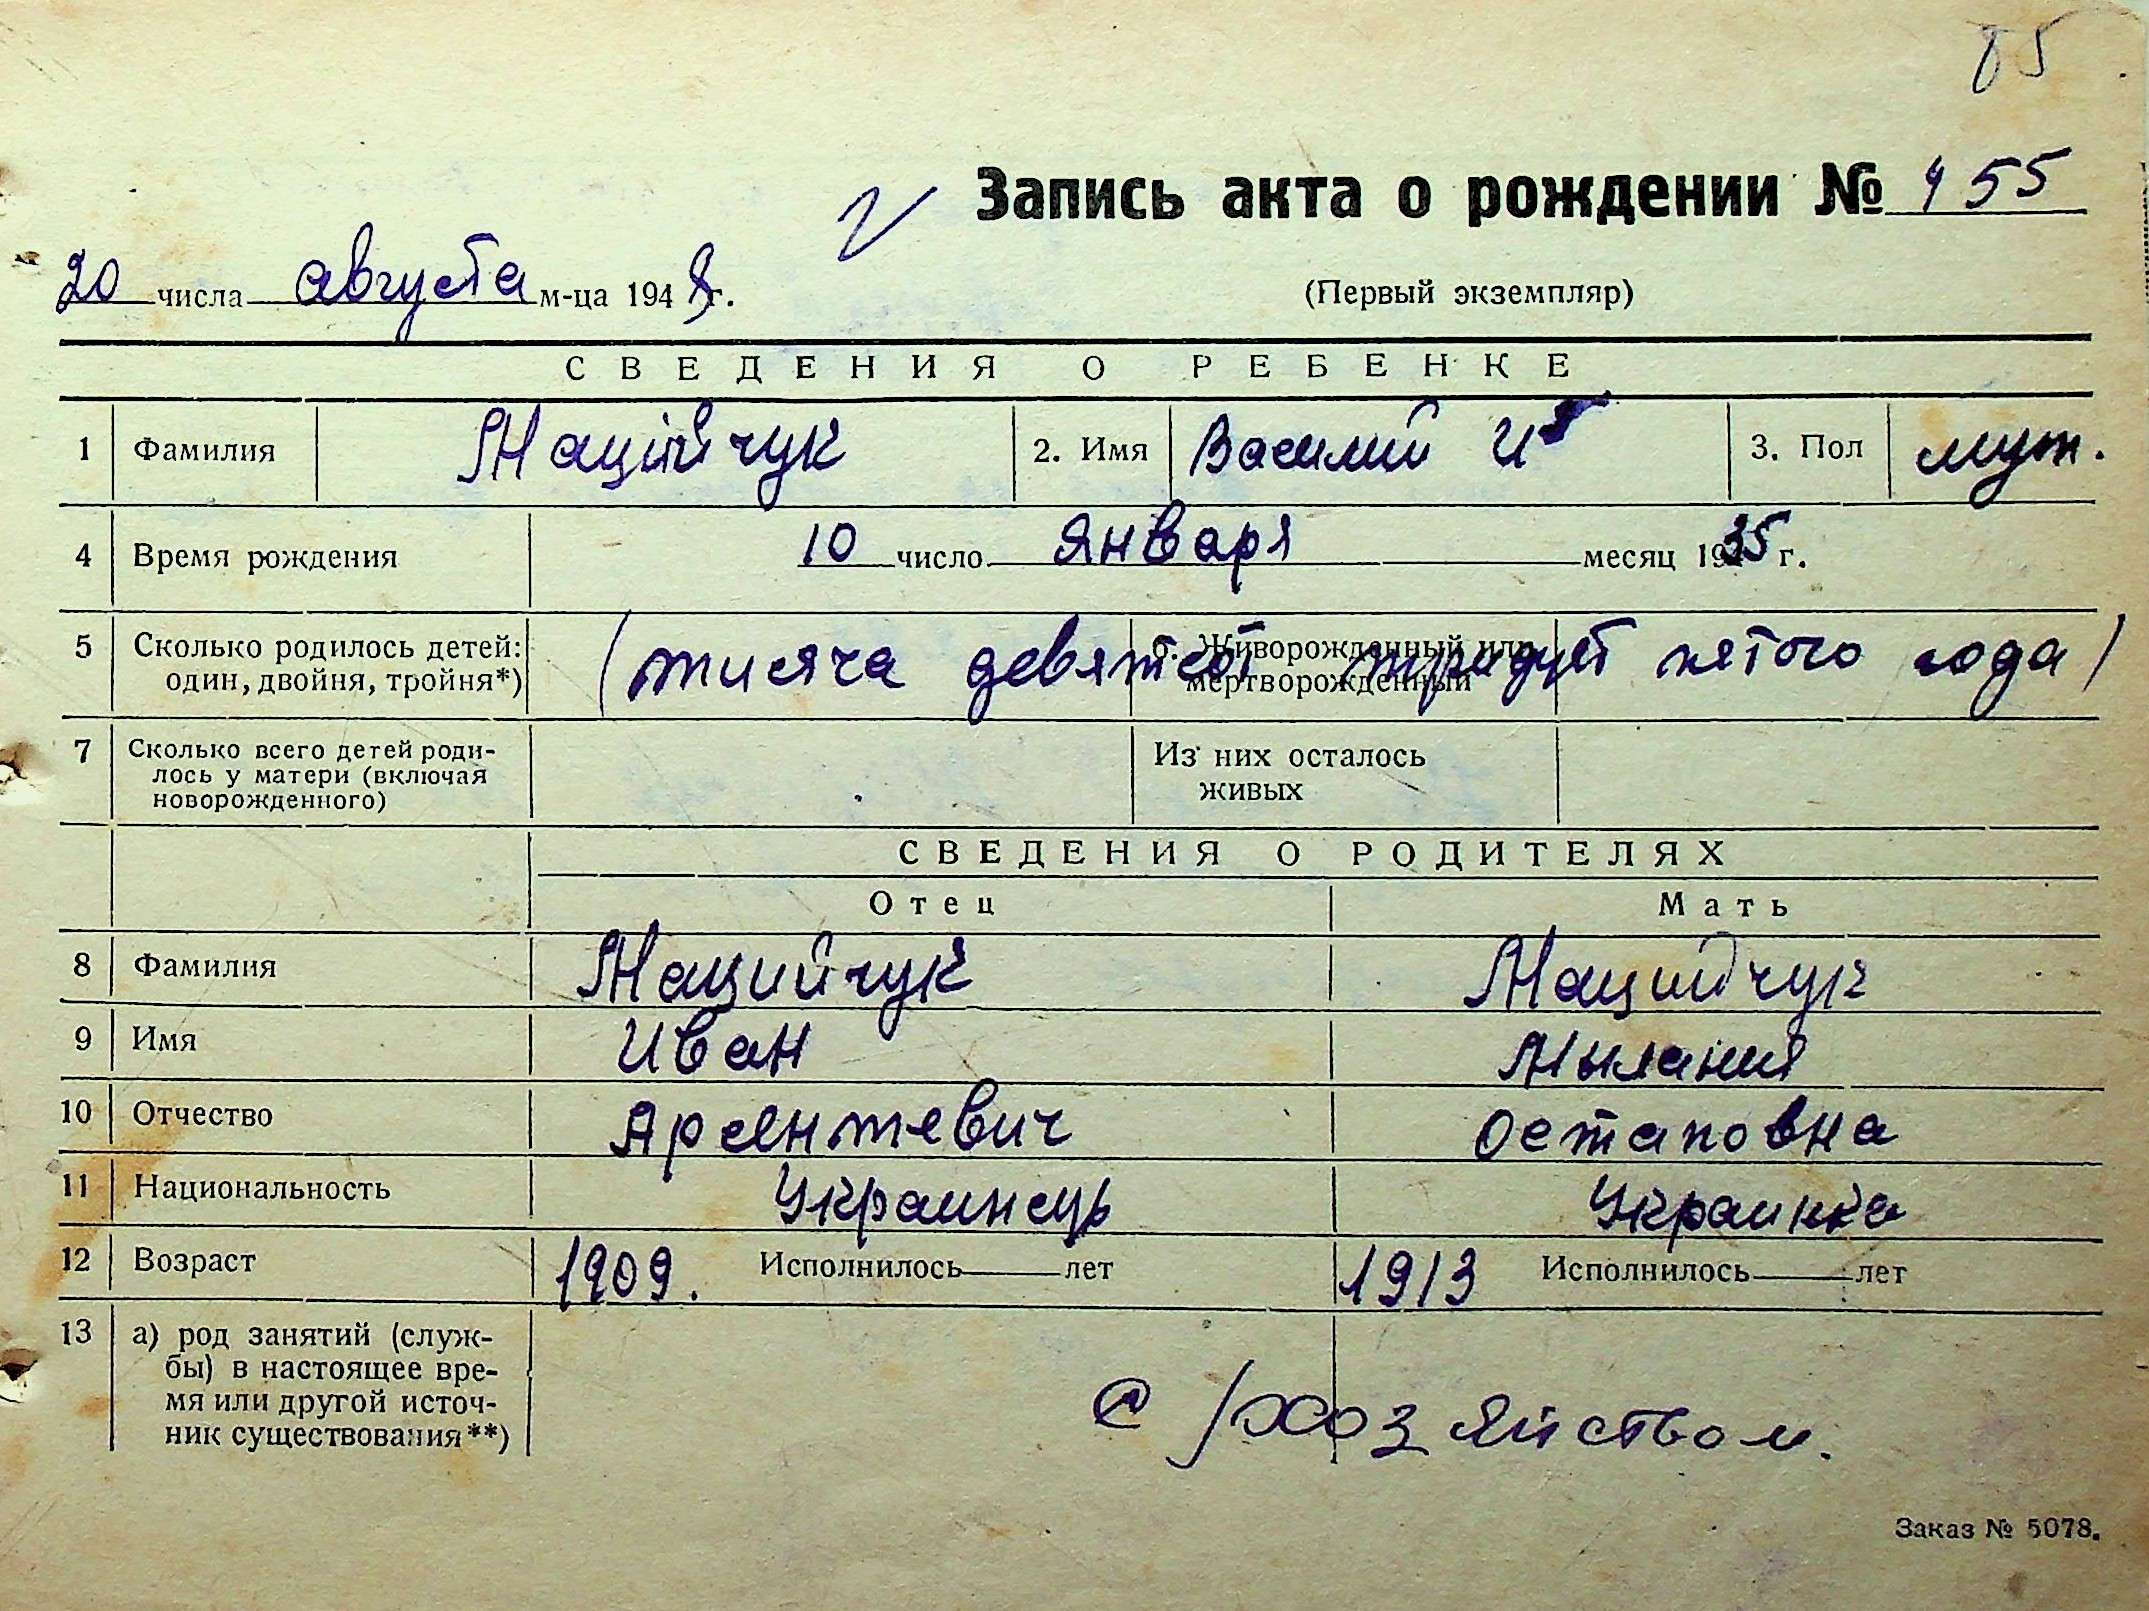 85
Запись акта о рождении № 455
20 числа августа м-ца 1948 г.
(Первый экземпляр)
СВЕДЕНИЯ О РЕБЕНКЕ
1 Фамилия Маційчук 2. Имя Василий И 3. Пол муж.
4 Время рождения 10 число января месяц 1935 г.
5 Сколько родилось детей: один, двойня, тройня*) 6. Живорожденный или мертворожденный
(тисяча девятсот тридцет пятого года)
7 Сколько всего детей роди-
лось у матери (включая
новорожденного)
Из них осталось
живых
СВЕДЕНИЯ О РОДИТЕЛЯХ
Отец Мать
8 Фамилия Мацийчук Мацийчук
9 Имя Иван Мылания
10 Отчество Арсентевич Остаповна
11 Национальность Украинець Украинка
12 Возраст 1909. Исполнилось лет 1913 Исполнилось лет
13 а) род занятий (служ-
бы) в настоящее вре-
мя или другой источ-
ник существования**)
с/хозяйством.
Заказ № 5078.